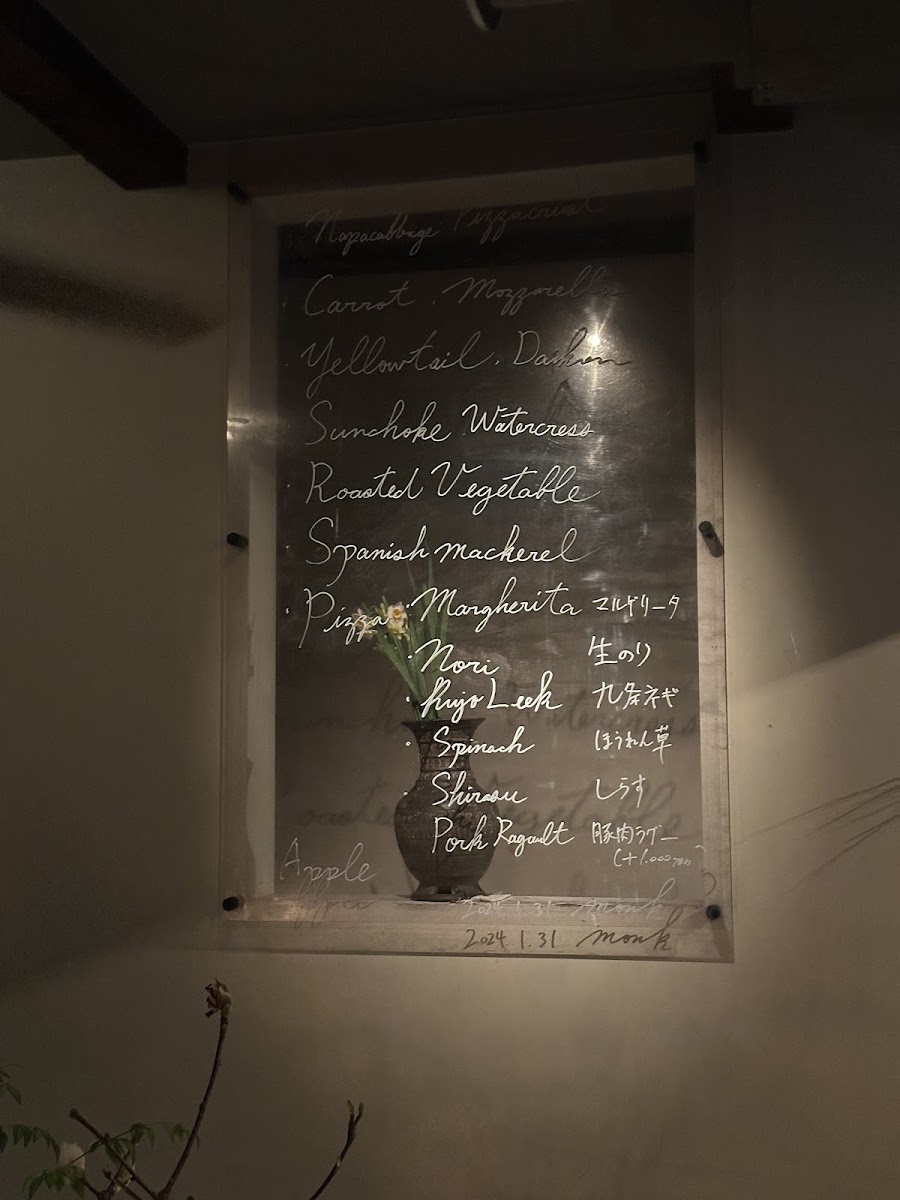 Napacabbage Pizzacrust
Carrot . Mozzarella
Yellowtail . Daikon
Sunchoke Watercress
Roasted Vegetable
Spanish mackerel
・Pizza ・Margherita マルゲリータ
・Nori 生のり
・Kujo Leek 九条ネギ
・Spinach ほうれん草
・Shirasu しらす
Pork Ragault 豚肉ラグー
(+1,000yen)
Apple
2024.1.31 monk